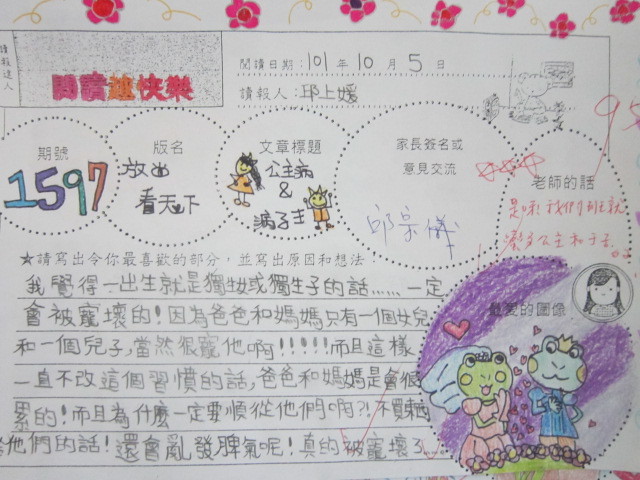 讀報達人
閱讀越快樂
閱讀日期:101年10月5日
讀報人:邱上媛
期號
1597
版名
放眼
看天下
文章標題
公主病
&
王子
家長簽名或
意見交流
老師的話
★請寫出令你最喜歡的部分,並寫出原因和想法:
我覺得一出生就是獨生女或獨生子的話……一定
會被寵壞的!因為爸爸和媽媽只有一個女兒
和一個兒子,當然很寵他啊!!!!!而且這樣
一直不改這個習慣的話,爸爸和媽媽是會很
累的!而且為什麼一定要順從他們啊?!不買東西
給他們的話!還會亂發脾氣呢!真的被寵壞了
最愛的圖像